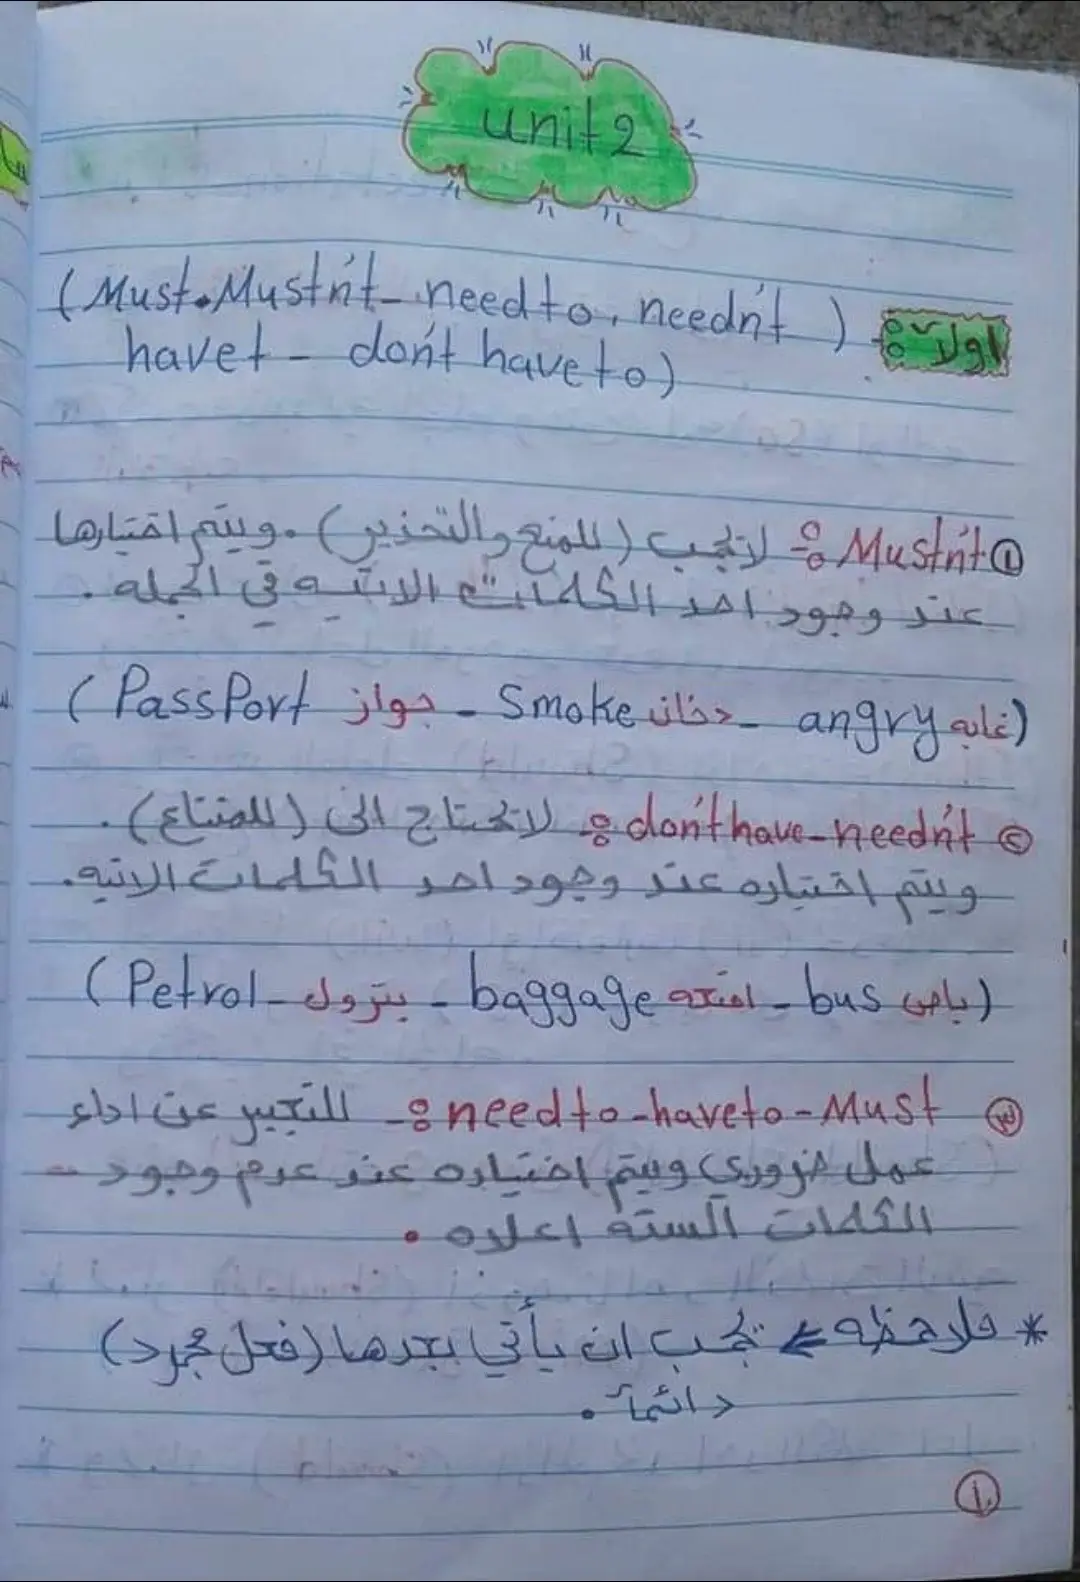 unit 2
اولاً: (Must. Mustn't - need to, needn't)
havet - don't have to)
① Mustn't: لايجب (للمنع والتحذير). ويتم اختيارها
عند وجود احد الكلمات الاتيه في الجمله.
(PassPort جواز - Smoke دخان - angry غابه)
② don't have - needn't: لايحتاج الى (للمتاع).
ويتم اختياره عند وجود احد الكلمات الاتيه.
(Petrol - بترول - baggage امتعه - bus باص)
③ need to - have to - Must: للتعبير عن اداء
عمل ضروري ويتم اختياره عند عدم وجود
الكلمات الستة اعلاه.
* ملاحظه ← يجب ان يأتي بعدها (فعل مجرد)
دائماً.
①